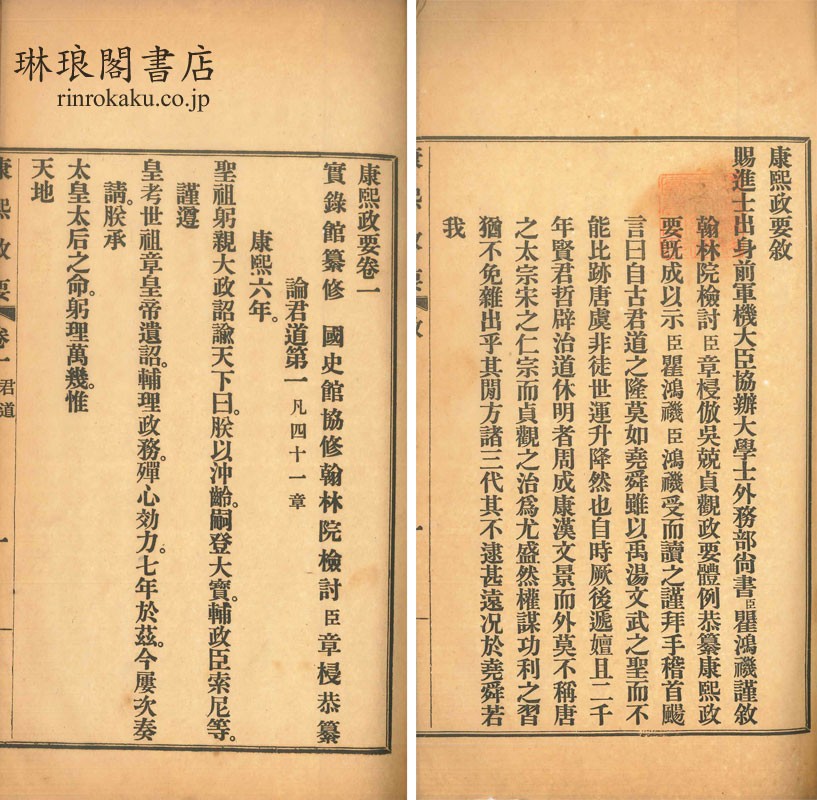 琳琅閣書店
rinrokaku.co.jp
康熙政要敘
賜進士出身前軍機大臣協辦大學士外務部尙書臣瞿鴻禨謹敘
翰林院檢討臣章梫倣吳兢貞觀政要體例恭纂康熙政
要旣成以示臣瞿鴻禨臣鴻禨受而讀之謹拜手稽首颺
言曰自古君道之隆莫如堯舜雖以禹湯文武之聖而不
能比跡唐虞非徒世運升降然也自時厥後遞嬗且二千
年賢君哲辟治道休明者周成康漢文景而外莫不稱唐
之太宗宋之仁宗而貞觀之治爲尤盛然權謀功利之習
猶不免雜出乎其閒方諸三代其不逮甚遠况於堯舜若
我
康熙政要
敘
一
康熙政要卷一
實錄館纂修 國史館協修翰林院檢討臣章梫恭纂
論君道第一 凡四十一章
康熙六年。
聖祖躬親大政詔諭天下曰。朕以沖齡。嗣登大寶。輔政臣索尼等。
謹遵
皇考世祖章皇帝遺詔。輔理政務。殫心効力。七年於茲。今屢次奏
請。朕承
太皇太后之命。躬理萬幾。惟
天地
康熙政要
卷一 君道
一